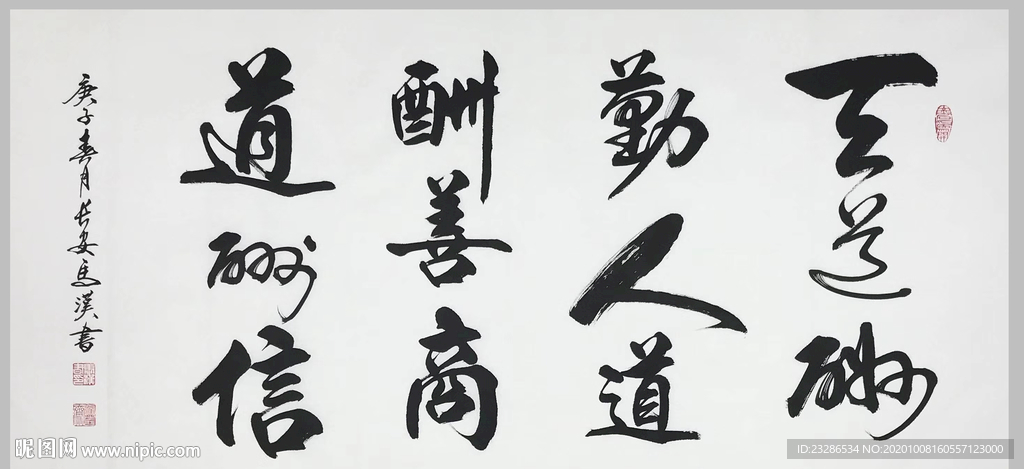 天道酬
勤人道
酬善商
道酬信
庚子春月长安马汉书
昵图网 www.nipic.com
ID:23286534 NO:20201008160557123000